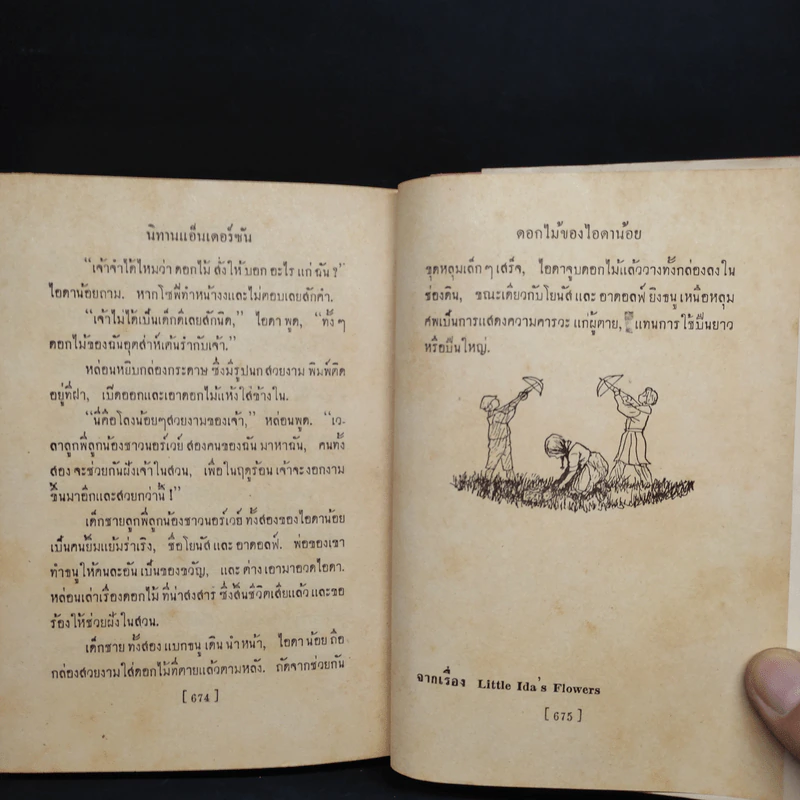 นิทานแอ็นเดอร์ซัน
“เจ้าจำได้ไหมว่า ดอกไม้ สั่งให้ บอก อะไร แก่ ฉัน ?”
ไอดาน้อยถาม. หากโซฟีทำหน้างงและไม่ตอบเลยสักคำ.
“เจ้าไม่ได้เป็นเด็กดีเลยสักนิด,” ไอดา พูด, “ทั้ง ๆ
ดอกไม้ของฉันอุตส่าห์เต้นรำกับเจ้า.”
หล่อนหยิบกล่องกระดาษ ซึ่งมีรูปนก สวยงาม พิมพ์ติด
อยู่ที่ฝา, เปิดออกและเอาดอกไม้แห้งใส่ข้างใน.
“นี่คือโลงน้อยๆสวยงามของเจ้า,” หล่อนพูด. “เว-
ลาลูกพี่ลูกน้องชาวนอร์เวย์ สองคนของฉัน มาหาฉัน, คนทั้ง
สอง จะช่วยกันฝังเจ้าในสวน, เพื่อในฤดูร้อน เจ้าจะงอกงาม
ขึ้นมาอีกและสวยกว่านี้ !”
เด็กชายลูกพี่ลูกน้องชาวนอร์เวย์ ทั้งสองของไอดาน้อย
เป็นคนยิ้มแย้มร่าเริง, ชื่อโยนัส และ อาดอลฟ์. พ่อของเขา
ทำธนูให้คนละอัน เป็นของขวัญ, และ ต่าง เอามาอวดไอดา.
หล่อนเล่าเรื่องดอกไม้ ที่น่าสงสาร ซึ่งสิ้นชีวิตเสียแล้ว และขอ
ร้องให้ช่วยฝังในสวน.
เด็กชาย ทั้งสอง แบกธนู เดิน นำ หน้า, ไอดา น้อย ถือ
กล่องสวยงามใส่ดอกไม้ที่ตายแล้วตามหลัง. ถัดจากช่วยกัน
[ 674 ]
ดอกไม้ของไอดาน้อย
ขุดหลุมเล็ก ๆ เสร็จ, ไอดาจูบดอกไม้แล้ววางทั้งกล่องลงใน
ช่องดิน, ขณะเดียวกับโยนัส และ อาดอลฟ์ ยิงธนู เหนือหลุม
ศพเป็นการแสดงความคารวะ แก่ผู้ตาย, แทนการ ใช้ ปืนยาว
หรือปืนใหญ่.
จากเรื่อง Little Ida's Flowers
[ 675 ]